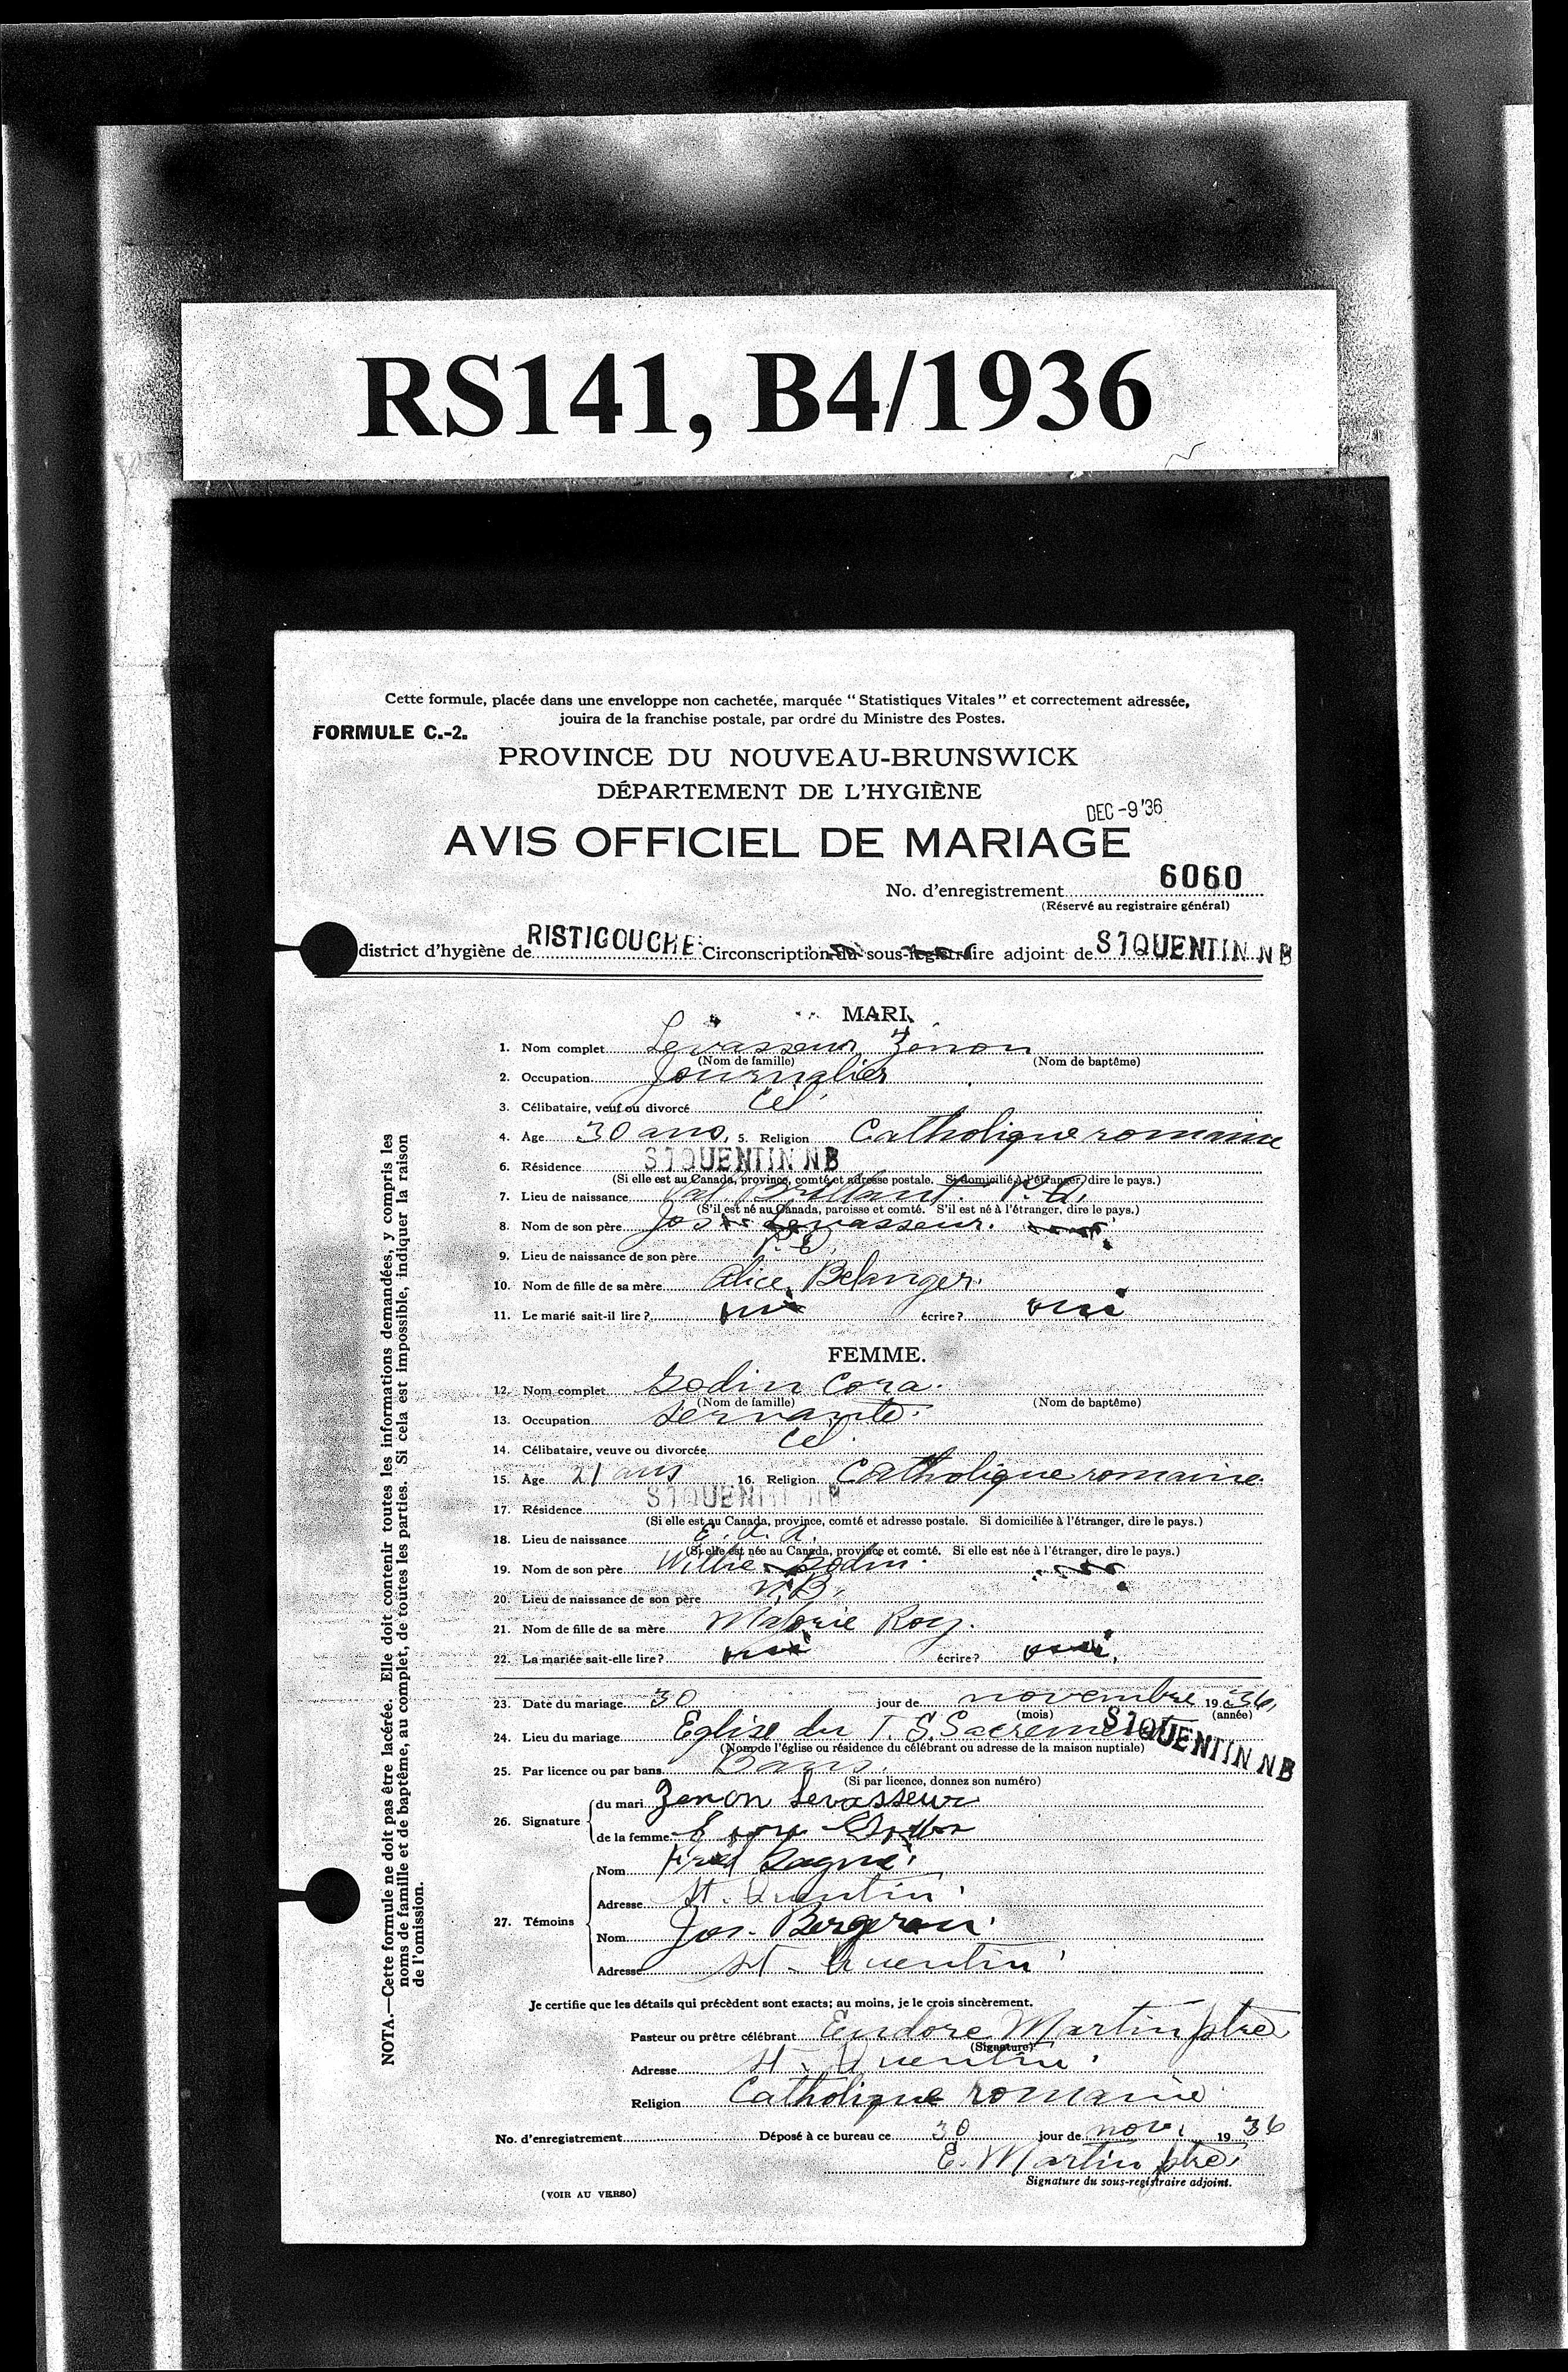 RS141, B4/1936
Cette formule, placée dans une enveloppe non cachetée, marquée "Statistiques Vitales" et correctement adressée,
jouira de la franchise postale, par ordre du Ministre des Postes.
FORMULE C.-2.
PROVINCE DU NOUVEAU-BRUNSWICK
DÉPARTEMENT DE L'HYGIÈNE
DEC -9 '36
AVIS OFFICIEL DE MARIAGE
No. d'enregistrement 6060
(Réservé au registraire général)
district d'hygiène de RISTIGOUCHE Circonscription du sous-registraire adjoint de ST QUENTIN N B
MARI.
1. Nom complet Levasseur Zénon
(Nom de famille) (Nom de baptême)
2. Occupation Journalier
3. Célibataire, veuf ou divorcé Cel.
4. Age 30 ans, 5. Religion Catholique romaine
6. Résidence ST QUENTIN N B
(Si elle est au Canada, province, comté et adresse postale. Si domicilié à l'étranger, dire le pays.)
7. Lieu de naissance Val Brillant. P.Q.
(S'il est né au Canada, paroisse et comté. S'il est né à l'étranger, dire le pays.)
8. Nom de son père Jos Levasseur.
9. Lieu de naissance de son père P.Q.
10. Nom de fille de sa mère Alice Belanger.
11. Le marié sait-il lire? oui écrire? oui
FEMME.
12. Nom complet Godin Cora.
(Nom de famille) (Nom de baptême)
13. Occupation servante.
14. Célibataire, veuve ou divorcée Cel.
15. Âge 21 ans 16. Religion Catholique romaine.
17. Résidence ST QUENTIN N B
(Si elle est au Canada, province, comté et adresse postale. Si domiciliée à l'étranger, dire le pays.)
18. Lieu de naissance E. U. A.
(Si elle est née au Canada, province et comté. Si elle est née à l'étranger, dire le pays.)
19. Nom de son père Willie Godin.
20. Lieu de naissance de son père N.B.
21. Nom de fille de sa mère Roy.
22. La mariée sait-elle lire? oui écrire? oui.
23. Date du mariage 30 jour de novembre 1936,
(mois) (année)
24. Lieu du mariage Eglise du T. S. Sacrement ST QUENTIN N B
(Nom de l'église ou résidence du célébrant ou adresse de la maison nuptiale)
25. Par licence ou par bans Bans.
(Si par licence, donnez son numéro)
26. Signature du mari Zenon Levasseur
de la femme
27. Témoins
Nom Fred Gagné
Adresse St. Quentin
Nom Jos. Bergeron
Adresse St. Quentin
Je certifie que les détails qui précèdent sont exacts; au moins, je le crois sincèrement.
Pasteur ou prêtre célébrant Eudore Martin ptre
(Signature)
Adresse St. Quentin
Religion Catholique romaine
No. d'enregistrement Déposé à ce bureau ce 30 jour de nov. 1936
E. Martin ptre
Signature du sous-registraire adjoint.
(VOIR AU VERSO)
NOTA.—Cette formule ne doit pas être lacérée. Elle doit contenir toutes les informations demandées, y compris les
noms de famille et de baptême, au complet, de toutes les parties. Si cela est impossible, indiquer la raison
de l'omission.